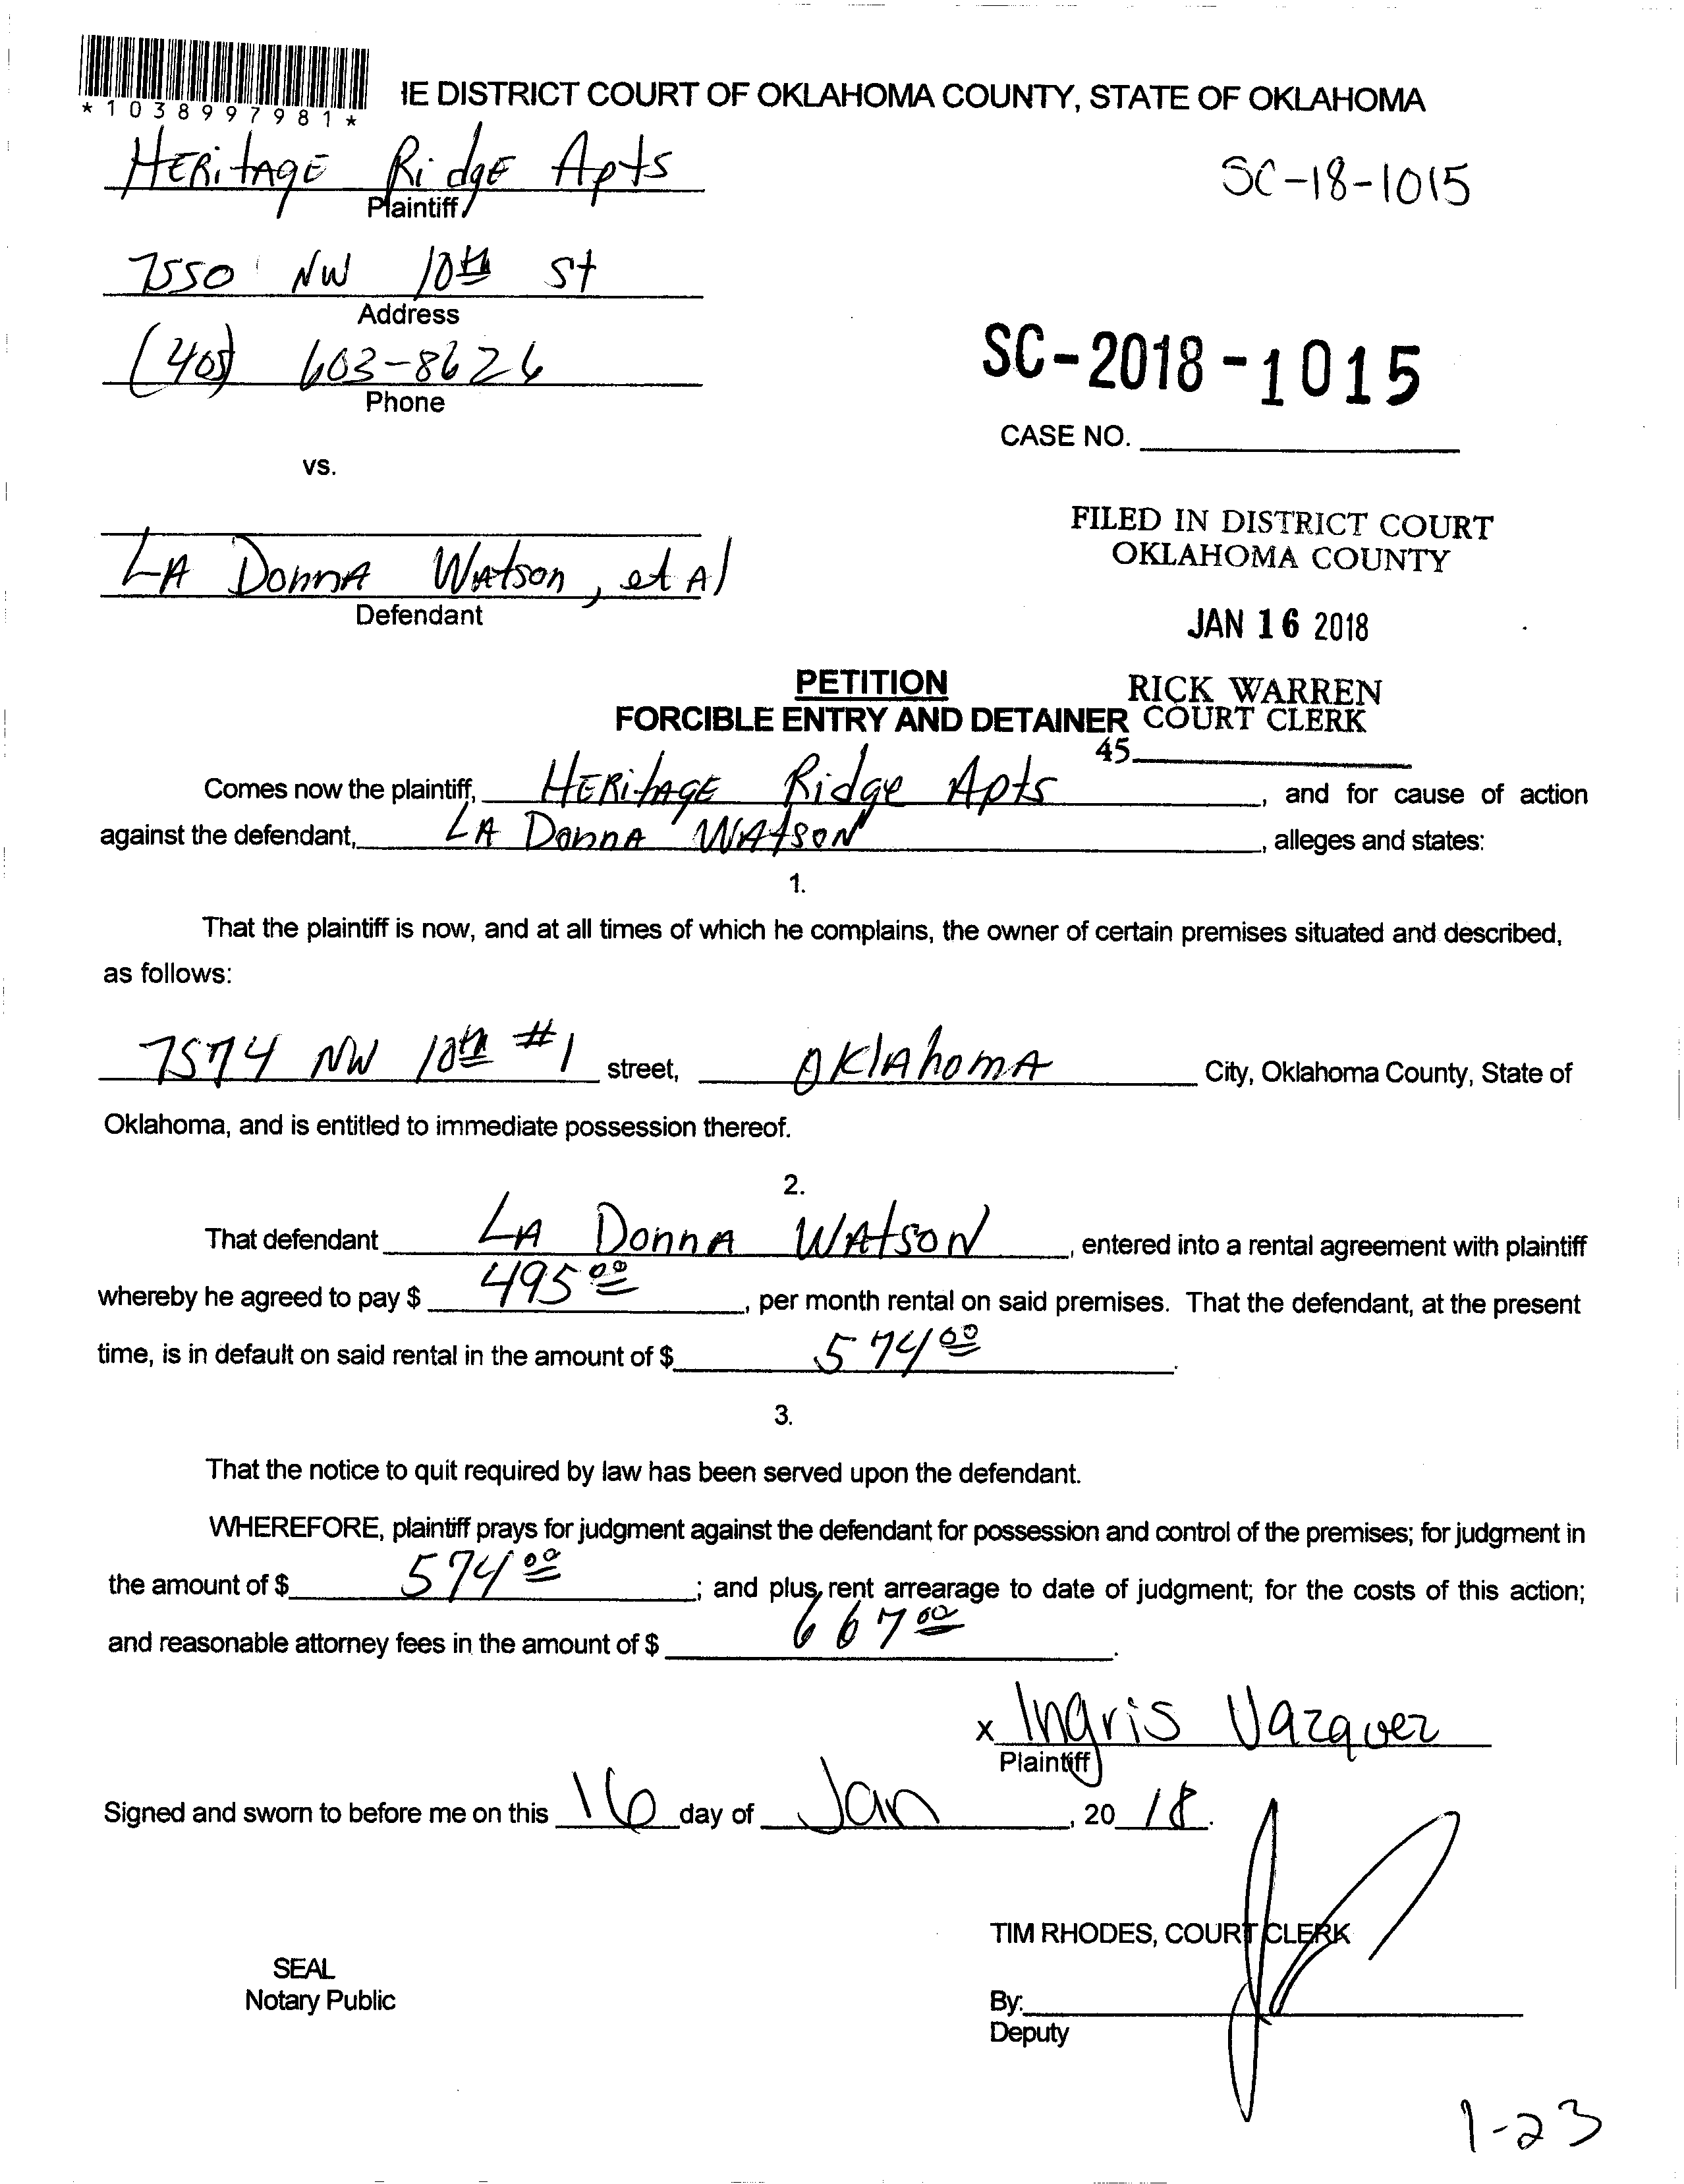 *1038997981*
IE DISTRICT COURT OF OKLAHOMA COUNTY, STATE OF OKLAHOMA
HERitAgE RidgE Apts
Plaintiff
SC-18-1015
7550 NW 10th St
Address
(405) 603-8626
Phone
SC-2018-1015
CASE NO.
vs.
FILED IN DISTRICT COURT
OKLAHOMA COUNTY
LA DonnA WAtson, et Al
Defendant
JAN 16 2018
PETITION
RICK WARREN
FORCIBLE ENTRY AND DETAINER COURT CLERK
45
Comes now the plaintiff, HERitAgE Ridge Apts, and for cause of action
against the defendant, LA DonnA WAtsoN, alleges and states:
1.
That the plaintiff is now, and at all times of which he complains, the owner of certain premises situated and described,
as follows:
7574 NW 10th #1 street, OklAhomA City, Oklahoma County, State of
Oklahoma, and is entitled to immediate possession thereof.
2.
That defendant LA DonnA WAtsoN, entered into a rental agreement with plaintiff
whereby he agreed to pay $ 495 00, per month rental on said premises. That the defendant, at the present
time, is in default on said rental in the amount of $ 574 00.
3.
That the notice to quit required by law has been served upon the defendant.
WHEREFORE, plaintiff prays for judgment against the defendant for possession and control of the premises; for judgment in
the amount of $ 574 00; and plus, rent arrearage to date of judgment; for the costs of this action;
and reasonable attorney fees in the amount of $ 667 00.
x Ingris Vazquez
Plaintiff
Signed and sworn to before me on this 16 day of Jan, 20 18.
TIM RHODES, COURT CLERK
SEAL
Notary Public
By:
Deputy
1-23